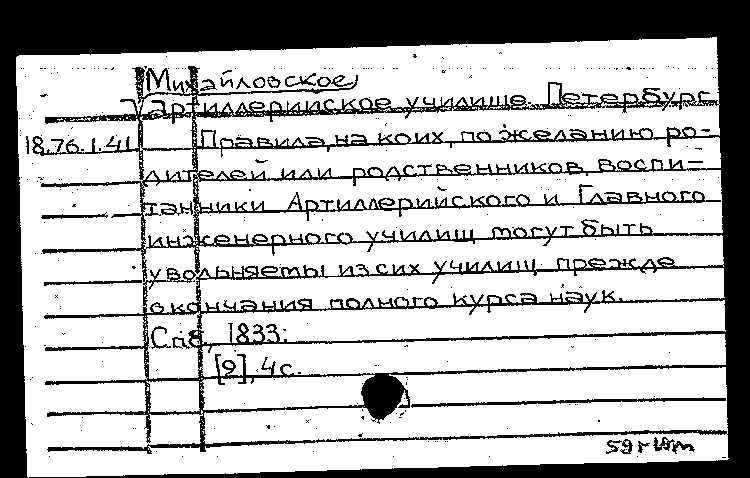 Михайловское
артиллерийское училище. Петербург.
18.76.1.41 Правила, на коих, по желанию ро-
дителей или родственников, воспи-
танники Артиллерийского и Главного
инженерного училищ могут быть
увольняемы из сих училищ прежде
окончания полного курса наук.
Спб., 1833.
[2], 4 с.